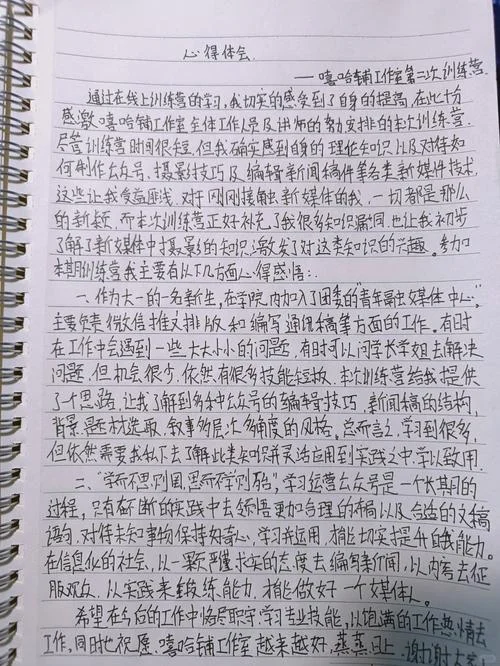 心得体会
——嘻哈铺工作室第二次训练营
通过在线上训练营的学习,我切实的感受到了自身的提高,在此十分
感激嘻哈铺工作室全体工作人员及讲师的努力安排的本次训练营.
尽管训练营时间很短,但我确实感到自身的理论知识以及对待如
何制作公众号、摄影技巧及编辑新闻稿件等各类新媒体技术.
这些让我受益匪浅.对于刚刚接触新媒体的我,一切都是那么
的新颖,而本次训练营正好补充了我很多知识漏洞,也让我初步
了解了新媒体中摄影的知识,激发了对这类知识的兴趣。参加
本期训练营我主要有以下几方面心得感悟:
一、作为大一的一名新生,在学院内加入了团委的“青年融媒体中心”.
主要负责微信推文排版和编写通讯稿等方面的工作,有时
在工作中会遇到一些大大小小的问题,有时可以问学长学姐去解决
问题,但机会很少,依然有很多技能短板.本次训练营给我提供
了个思路,让我了解到多种公众号的编辑技巧,新闻稿的结构,
背景,题材选取,叙事多层次多角度的风格。总而言之,学习到很多,
但依然需要我私下去了解此类知识并灵活应用到实践之中,学以致用.
二、“学而不思则罔,思而不学则殆”,学习运营公众号是一个长期的
过程,只有在不断的实践中去领悟更加合理的布局以及合适的文稿
语句,对待未知事物保持好奇心,学习并运用,才能切实提升自我能力。
在信息化的社会,从一颗严谨求实的态度去编写新闻,以内容去征
服观众,从实践来锻练能力,才能做好一个媒体人。
希望在今后的工作中恪尽职守,学习专业技能,以饱满的工作热情去
工作,同时也祝愿,嘻哈铺工作室越来越好,蒸蒸日上.谢谢大家